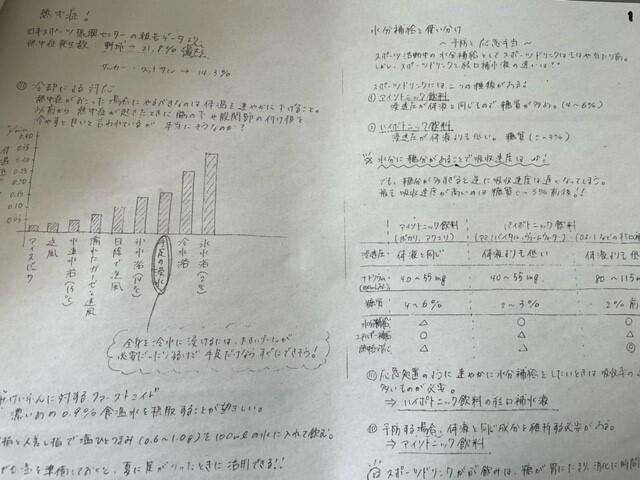 熱中症！
日本スポーツ振興センターの報告データより
熱中症発生数: 野球 → 21.8%
サッカー → 14.3%
冷却による対応
熱中症がおこった場合にやるべきなのは体温を速やかに下げること。
以前から熱中症が起きたときに脇の下や股関節の付け根を
冷やすと良いと言われているが本当にそうなのか？
0.40
0.35
0.30
0.25
0.20
0.15
0.10
0.05
アイスパック
送風
水道水浴
濡れたガーゼと送風
日陰で送風
氷水浴
手足の
冷水浴
氷水浴
全身を冷水に浸けるには、大きい
必要だったりするけど手足だけならすぐにできそう！
けいれんに対するファーストエイド
濃いめの0.9%食塩水を摂取することが望ましい。
指と人差し指で塩ひとつまみ(0.6〜1.0g)を100mlの水に入れて飲む。
塩を準備しておくと、夏に足がつったときに活用できる!!
1
水分補給と使い分け
〜予防と応急手当〜
スポーツ活動中の水分補給としてスポーツドリンクはもはや当たり前。
しかし、スポーツドリンクと経口補水液の違いは!?
スポーツドリンクには二つの種類がある
① アイソトニック飲料
浸透圧が体液と同じもので糖質が多め。(4〜6%)
② ハイポトニック飲料
浸透圧が体液よりも低い。糖質(2〜3%)
水分に糖分があることで吸収速度は
でも、糖分が多すぎると逆に吸収速度は遅くなってしまう。
最も吸収速度が高いのは糖質2〜3%前後!!
アイソトニック飲料 ハイポトニック飲料
(ポカリ、アクエリ) (OS-1などの経口補
浸透圧 体液と同じ 体液よりも低い 体液よりも低
ナトリウム 40〜55mg 40〜55mg 80〜115m
糖質 4〜6% 2〜3% 2%前
水分補給 △ ○ ○
エネルギー補給 ○ △ △
熱中症 △ △ ◎
応急処置のように速やかに水分補給をしたいときは吸収率の
多いものが必要。
⇒ ハイポトニック飲料の経口補水液
予防する場合、体液と同じ成分を維持する必要がある。
⇒ アイソトニック飲料
スポーツドリンクがぶ飲みは、糖が胃にたまり、消化に時間